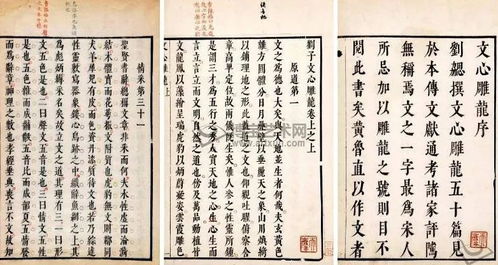 文心雕龍序
劉勰撰文心雕龍五十篇見
於本傳文獻通考諸家評隲
無稱焉文之一字最為宋人
所忌加以雕龍之號則目不
閱此書矣黃魯直以作文者
劉子文心雕龍卷上之上
原道第一
文之為德也大矣與天地並生者何哉夫玄黃色
雜方圓體分日月疊璧以垂麗天之象山川煥綺
以鋪理地之形此蓋道之文也仰觀吐曜俯察含
章高卑定位故兩儀既生矣惟人參之性靈所鍾
是謂三才為五行之秀實天地之心心生而
言立言立而文明自然之道也傍及萬品動植皆
文龍鳳以藻繪呈瑞虎豹以炳蔚凝姿雲霞雕色
情采第三十一
聖賢書辭總稱文章非采而何夫水性虛而淪漪
結木體實而花萼振文附質也虎豹無文則鞟同
犬羊犀兕有皮而色資丹漆質待文也若乃綜述
性靈敷寫器象鏤心鳥跡之中織辭魚網之上其
為彪炳縟采名矣故立文之道其理有三一曰形
文五色是也二曰聲文五音是也三曰情文五性
是也五色雜而成黼黻五音比而成韶夏五情發
而為辭章神理之數也孝經垂典喪言不文故知